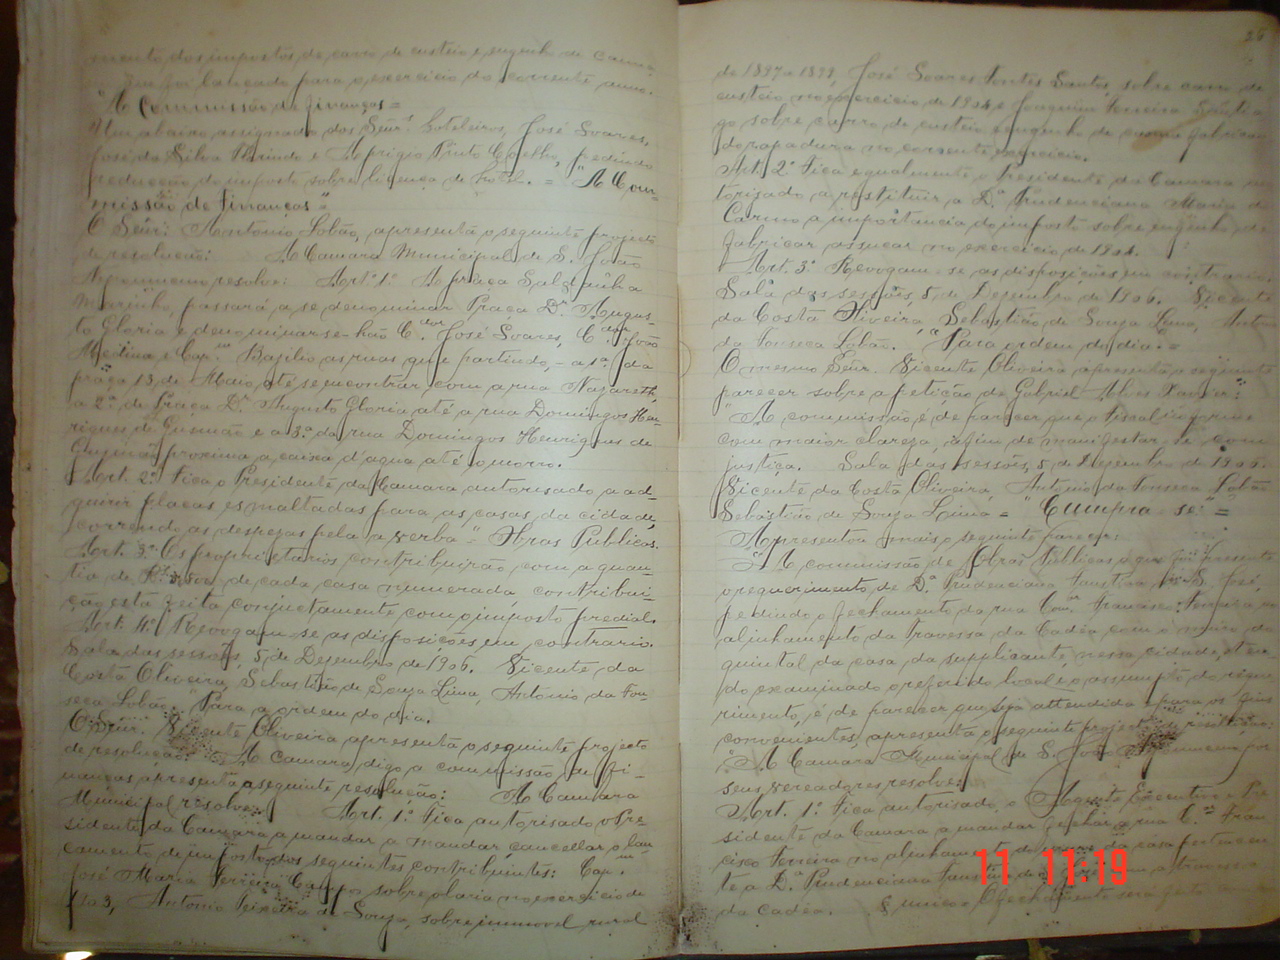 mento dos impostos de carro de custeio e engenho de canna,
que foi lançado para o exercicio do corrente anno.
"A Commissão de finanças=
Um abaixo assignado dos Senr.s hoteleiros, José Soares,
José da Silva Florindo e Aprigio Pinto Coelho, pedindo
reducção do imposto sobre licença de hotel. = "A Com-
missão de Finanças"=
O Senr: Antonio Lobão, apresentá o seguinte projecto
de resolução: A Camara Municipal de S. João
Nepomuceno resolve: Art.º 1.º A praça
Marinho, passará a se denominar Praça D.r Augus-
to Gloria e denominar-se-hão C.dor José Soares, C.dor João
Medina e Cap.m Bazilio as ruas que partindo, - a 1.ª da
praça 13 de Maio até se encontrar com a rua Nazareth,
a 2.ª da Praça D.r Augusto Gloria até a rua Domingos Hen-
riques de Gusmão e a 3.ª da rua Domingos Henriques de
Gusmão proxima a caixa d'agua até o morro.
Art. 2.º Fica o Presidente da Camara autorisado a ad-
quirir placas esmaltadas para as casas da cidade,
correndo as despezas pela verba - Obras Publicas.
Art. 3.º Os proprietarios contribuirão com a quan-
tia de de cada casa numerada contribui-
ção esta feita conjuctamente com o imposto predial.
Art. 4.º Revogam-se as disposições em contrario.
Sala das sessões, 5 de Dezembro de 1906. Vicente da
Costa Oliveira, Sebastião de Souza Lima, Antonio da Fon-
seca Lobão. "Para a ordem do dia.
O Senr. Vicente Oliveira apresentá o seguinte projecto
de resolução: A Camara digo a commissão de fi-
nanças apresentá a seguinte resolução: A Camara
Municipal resolve: Art. 1.º Fica autorisado o Pre-
sidente da Camara a mandar a mandar cancellar o lan-
camento de imposto dos seguintes contribuintes: Cap.m
José Maria Ferreira Campos sobre olaria no exercicio de
Antonio Teixeira de Souza, sobre immovel rural
26
de 1897 a 1899, José Soares Fontes Santos, sobre carro de
custeio no exercicio de 1904 e Joaquim Ferreira Santia-
go sobre carro de custeio e engenho de canna fabrican-
do rapadura no corrente exercicio.
Art. 2.º Fica egualmente o Presidente da Camara au-
torisado a restituir a D.ª Prudenciana Maria do
Carmo a importancia do imposto sobre engenho de
fabricar assucar no exercicio de 1904.
Art. 3.º Revogam-se as disposições em contrario.
Sala das sessões, 5 de Dezembro de 1906. Vicente
da Costa Oliveira, Sebastião de Souza Lima, Antonio
da Fonseca Lobão. "Para ordem do dia.=
O mesmo Senr. Vicente Oliveira apresentá o seguinte
parecer sobre a petição de Gabriel Alves Xavier:
"A commissão é de parecer que o fiscal informe
com maior clareza, afim de manifestar-se com
justiça. Sala das sessões, 5 de Dezembro de 1906.
Vicente da Costa Oliveira, Antonio da Fonseca Lobão
Sebastião de Souza Lima = "Cumpra-se"=
Apresentou mais o seguinte parecer:
"A commissão de Obras Publicas a que foi presente
o requerimento de D.ª Prudenciana Faustina de S. José,
pedindo o fechamento da rua Con.or Francisco Ferreira no
alinhamento da Travessa da Cadêa com o muro do
quintal da casa da supplicante, nessa cidade, ten-
do examinado o referido local e o assumpto do reque-
rimento, é de parecer que seja attendida e para os fins
convenientes, apresentá o seguinte projecto de resolução:
"A Camara Municipal de S. João Nepomuceno por
seus vereadores resolve:
Art. 1.º Fica autorisado o Agente Executivo e Pre-
sidente da Camara a mandar fechar a rua C.or Fran-
cisco Ferreira no alinhamento do muro da casa pertencen-
te a D.ª Prudenciana Faustina de S. José com a travessa
da cadêa. § unico O fechamento será feito
11 11:19